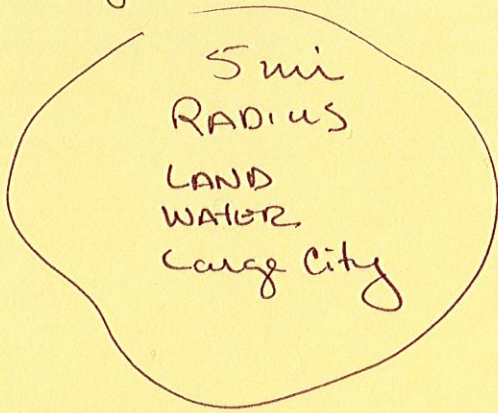 5 mi
RADIUS
LAND
WATER
Large City